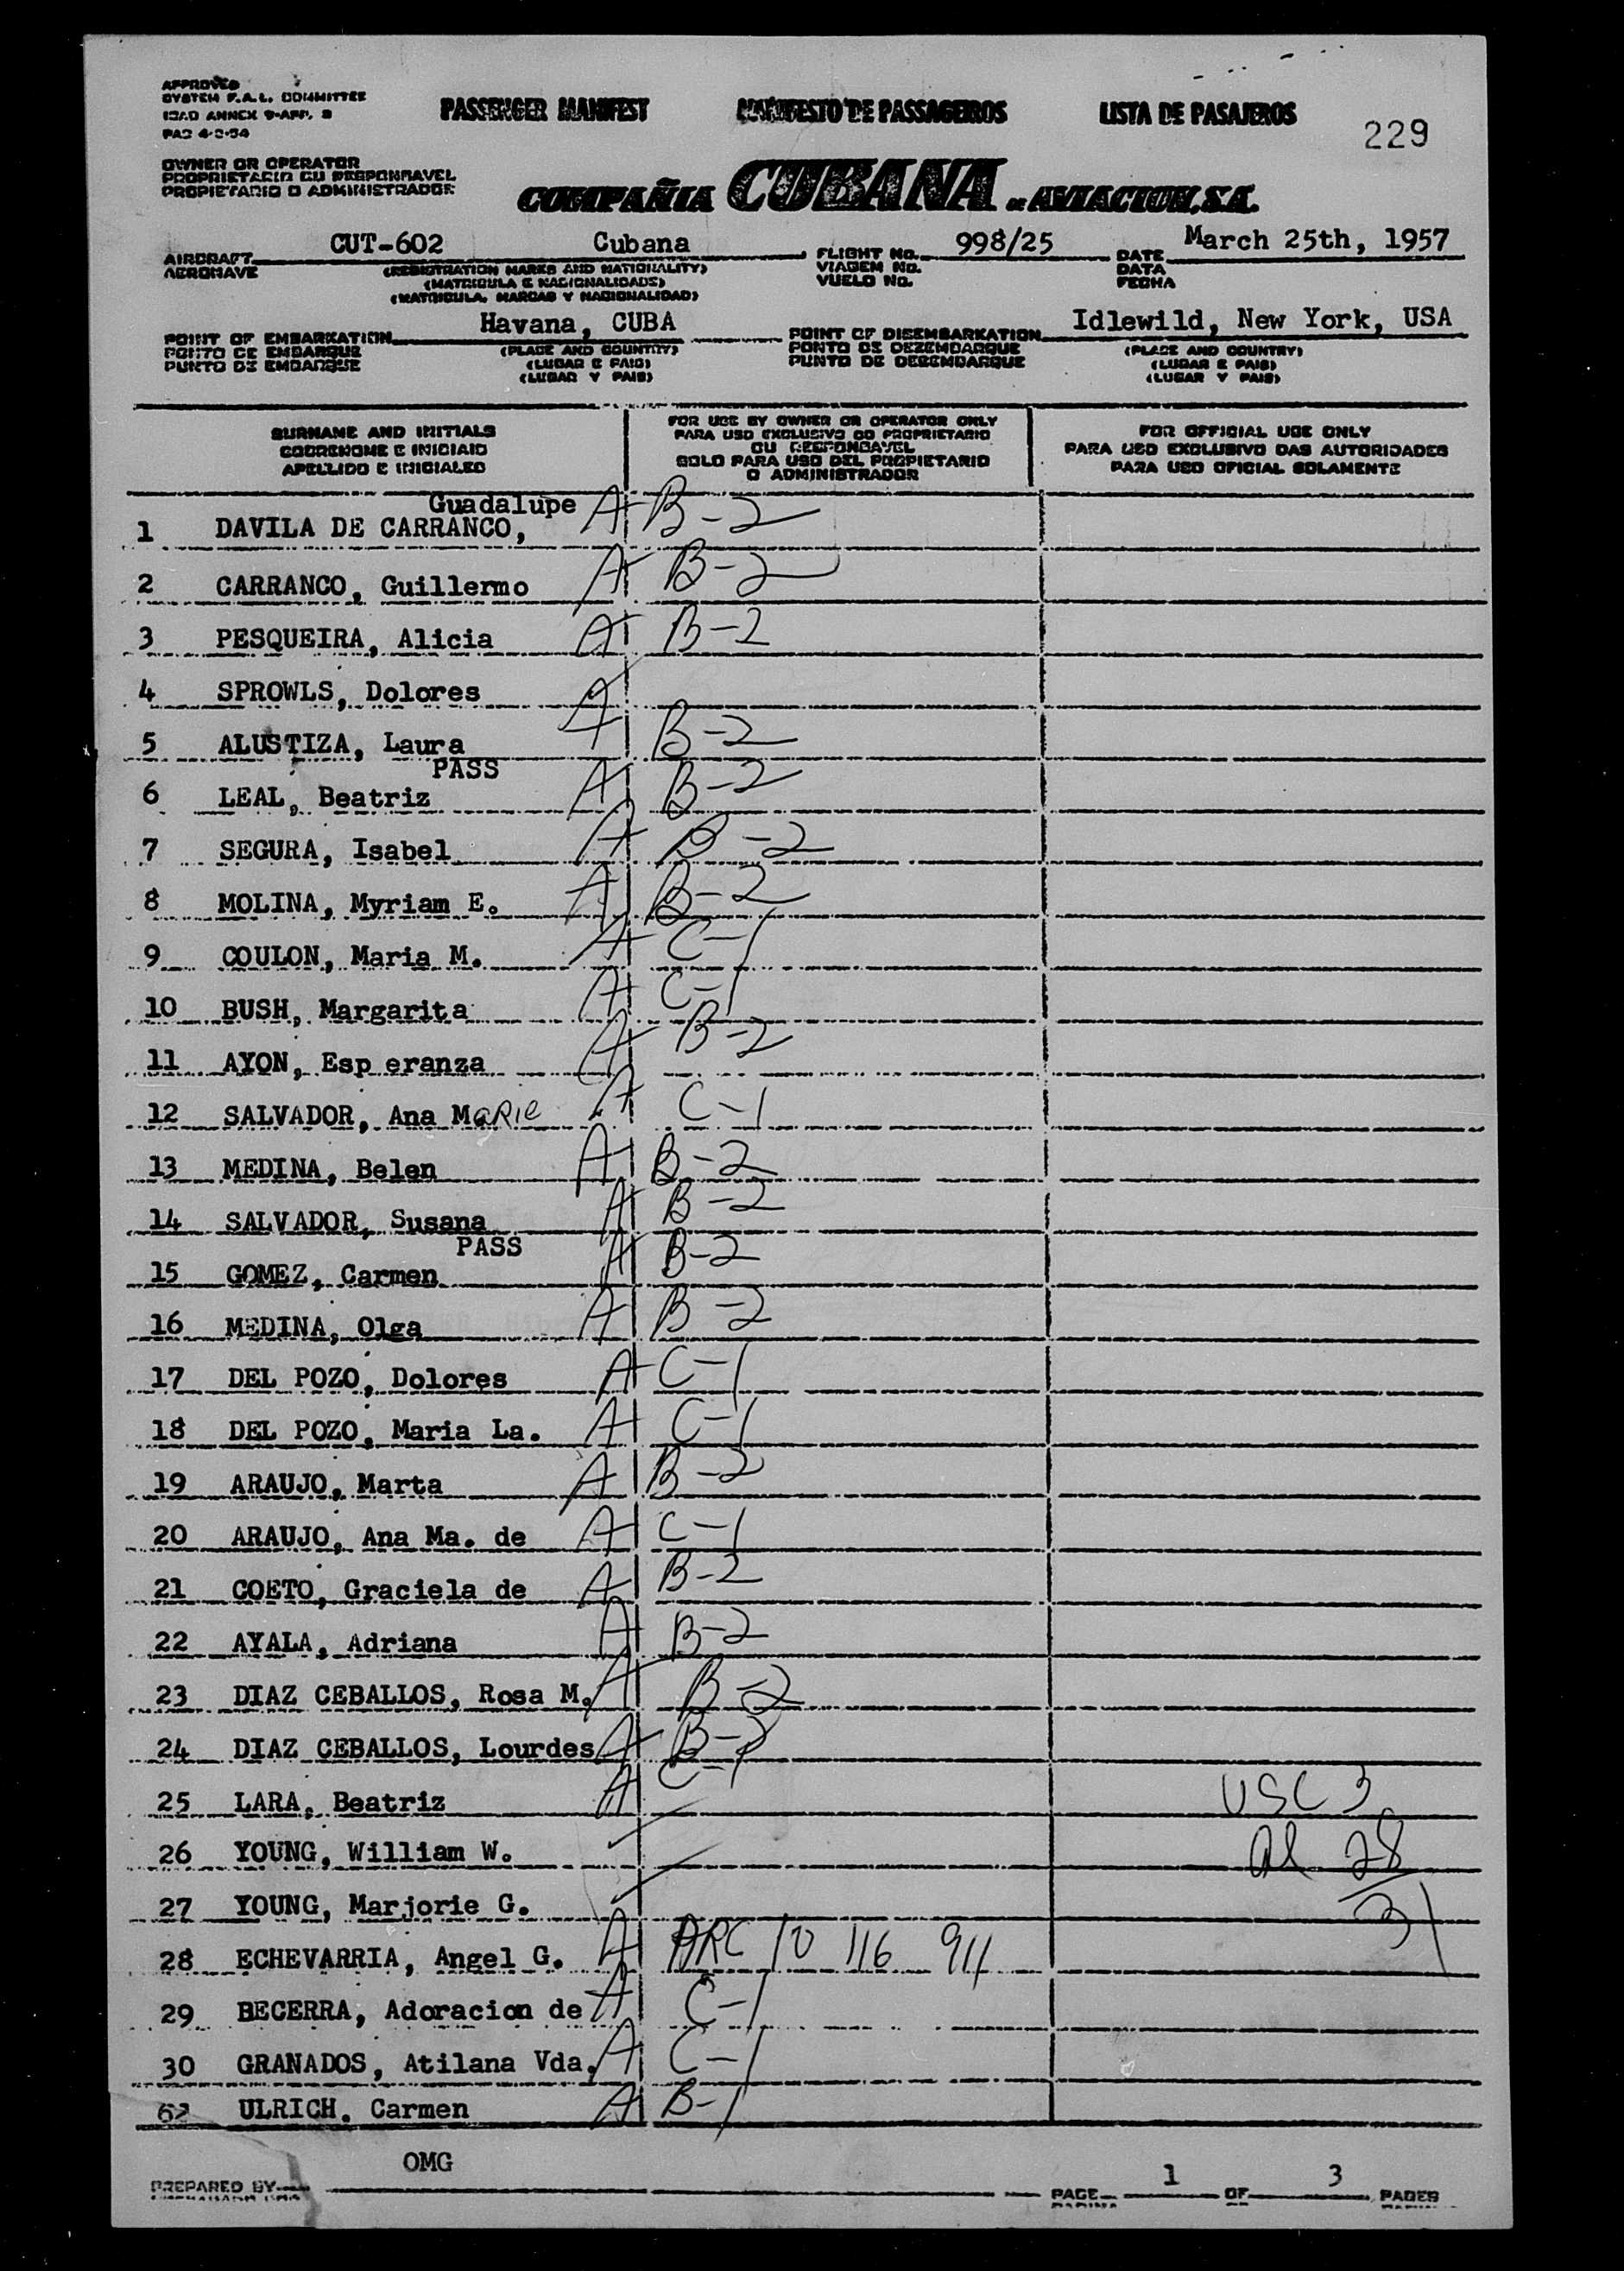 APPROVED
SYSTEM F.A.L. COMMITTEE
ICAO ANNEX 9-APP. 3
PAS 4-3-54
PASSENGER MANIFEST MANIFESTO DE PASSAGEIROS LISTA DE PASAJEROS
229
OWNER OR OPERATOR
PROPRIETARIO OU RESPONSAVEL
PROPIETARIO O ADMINISTRADOR
COMPAÑIA CUBANA DE AVIACION, S.A.
AIRCRAFT CUT-602 Cubana FLIGHT No. 998/25 DATE March 25th, 1957
AERONAVE (REGISTRATION MARKS AND NATIONALITY) VIAGEM No. DATA
(MATRICULA E NACIONALIDADE) VUELO No. FECHA
(MATRICULA, MARCAS Y NACIONALIDAD)
POINT OF EMBARKATION Havana, CUBA POINT OF DISEMBARKATION Idlewild, New York, USA
PONTO DE EMBARQUE (PLACE AND COUNTRY) PONTO DE DEZEMBARQUE (PLACE AND COUNTRY)
PUNTO DE EMBARQUE (LUGAR E PAIS) PUNTO DE DESEMBARQUE (LUGAR E PAIS)
(LUGAR Y PAIS) (LUGAR Y PAIS)
SURNAME AND INITIALS
SOBRENOME E INICIAIS
APELLIDO E INICIALES
FOR USE BY OWNER OR OPERATOR ONLY
PARA USO EXCLUSIVO DO PROPRIETARIO
OU RESPONSAVEL
SOLO PARA USO DEL PROPIETARIO
O ADMINISTRADOR
FOR OFFICIAL USE ONLY
PARA USO EXCLUSIVO DAS AUTORIDADES
PARA USO OFICIAL SOLAMENTE
Guadalupe
1 DAVILA DE CARRANCO, A B-2
2 CARRANCO, Guillermo A B-2
3 PESQUEIRA, Alicia A B-2
4 SPROWLS, Dolores A
5 ALUSTIZA, Laura A B-2
PASS
6 LEAL, Beatriz A B-2
7 SEGURA, Isabel A B-2
8 MOLINA, Myriam E. A B-2
9 COULON, Maria M. A C-1
10 BUSH, Margarita A C-1
11 AYON, Esp eranza A B-2
12 SALVADOR, Ana Marie A C-1
13 MEDINA, Belen A B-2
14 SALVADOR, Susana A B-2
PASS
15 GOMEZ, Carmen A B-2
16 MEDINA, Olga A B-2
17 DEL POZO, Dolores A C-1
18 DEL POZO, Maria La. A C-1
19 ARAUJO, Marta A B-2
20 ARAUJO, Ana Ma. de A C-1
21 COETO, Graciela de A B-2
22 AYALA, Adriana A B-2
23 DIAZ CEBALLOS, Rosa M. A B-2
24 DIAZ CEBALLOS, Lourdes A B-2
25 LARA, Beatriz A C-1 USC 3
26 YOUNG, William W. Al 28
27 YOUNG, Marjorie G. 31
28 ECHEVARRIA, Angel G. A ARC 10 116 911
29 BECERRA, Adoracion de A C-1
30 GRANADOS, Atilana Vda. A C-1
62 ULRICH. Carmen A B-1
OMG
PREPARED BY PAGE 1 OF 3 PAGES